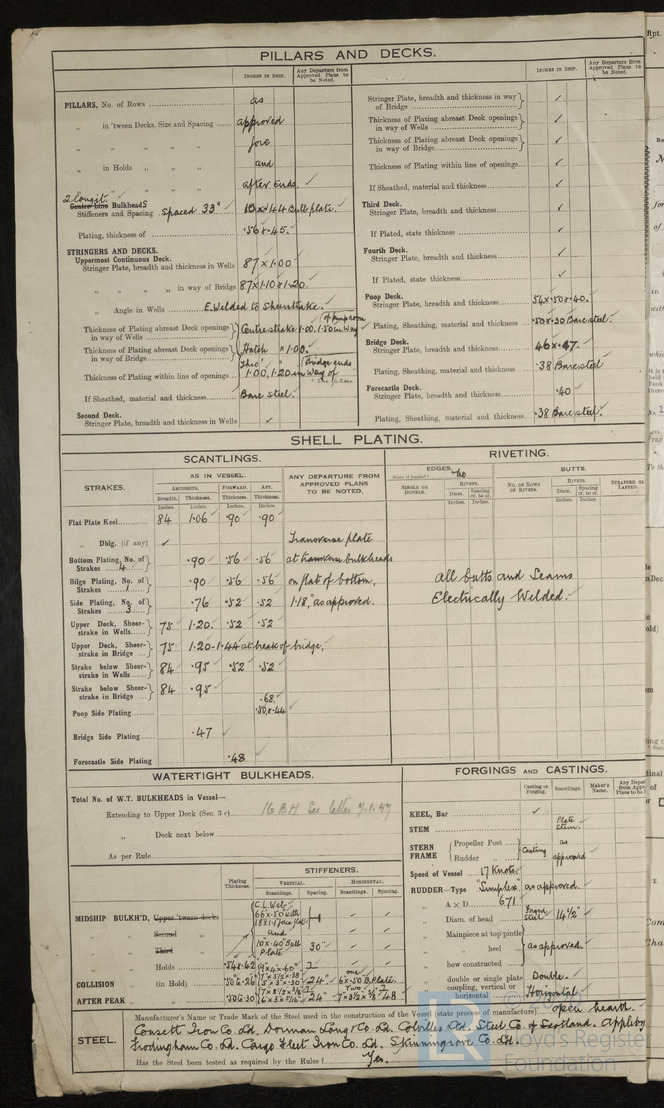 PILLARS AND DECKS.
INCHES IN SHIP.
Any Departure from Approved Plans to be Noted.
PILLARS, No. of Rows as
" in 'tween Decks, Size and Spacing approved
" " " " fore
" in Holds " " and
" " " " after ends. ✓
2 longit. Centre Line BulkheadS
Stiffeners and Spacing Spaced 33"
Bull plate.
Plating, thickness of .56 & .45.
STRINGERS AND DECKS.
Uppermost Continuous Deck.
Stringer Plate, breadth and thickness in Wells 87 × 1.00 ✓
" " " " in way of Bridge 87 × 1.10 & 1.20.
" Angle in Wells E. Welded to Sheerstrake. ✓
Thickness of Plating abreast Deck openings in way of Wells Centre strake 1.00. 1.50 in way
Thickness of Plating abreast Deck openings in way of Bridge Hatch " 1.00.
Thickness of Plating within line of openings 1.00, 1.20 in way of Bridge ends
If Sheathed, material and thickness Bare steel.
Second Deck.
Stringer Plate, breadth and thickness in Wells ✓
INCHES IN SHIP.
Any Departure from Approved Plans to be Noted.
Stringer Plate, breadth and thickness in way of Bridge ✓
Thickness of Plating abreast Deck openings in way of Wells ✓
Thickness of Plating abreast Deck openings in way of Bridge ✓
Thickness of Plating within line of openings ✓
If Sheathed, material and thickness ✓
Third Deck.
Stringer Plate, breadth and thickness ✓
If Plated, state thickness ✓
Fourth Deck.
Stringer Plate, breadth and thickness ✓
If Plated, state thickness ✓
Poop Deck.
Stringer Plate, breadth and thickness 54 × .50 & .40. ✓
" Plating, Sheathing, material and thickness .50 & .30 Bare steel. ✓
Bridge Deck.
Stringer Plate, breadth and thickness 46 × .47. ✓
Plating, Sheathing, material and thickness .38 Bare steel
Forecastle Deck.
Stringer Plate, breadth and thickness .40
Plating, Sheathing, material and thickness .38 Bare steel.
SHELL PLATING.
SCANTLINGS.
RIVETING.
STRAKES.
AS IN VESSEL.
AMIDSHIPS.
FORWARD.
AFT.
Breadth.
Thickness.
Thickness.
Thickness.
Inches.
Inches.
Inches.
Inches.
ANY DEPARTURE FROM APPROVED PLANS TO BE NOTED.
EDGES.
No
SINGLE OR DOUBLE.
RIVETS.
Diam.
Spacing cr. to cr.
Inches.
Inches.
BUTTS.
No. of Rows of Rivets.
RIVETS.
Diam.
Spacing cr. to cr.
Inches.
Inches.
STRAPPED OR LAPPED.
Flat Plate Keel 84 1.06 .90 .90
" Dblg. (if any) ✓ Transverse plate
Bottom Plating, No. of Strakes 4 .90 .56 .56 at transverse bulkheads
Bilge Plating, No. of Strakes 1 .90 .56 .56 on flat of bottom,
Side Plating, No. of Strakes 3 .76 .52 .52 1.18," as approved.
All butts and Seams
Electrically Welded.
Upper Deck, Sheerstrake in Wells 75 1.20. .52 .52
Upper Deck, Sheerstrake in Bridge 75 1.20 - 1.44 at break of bridge.
Strake below Sheerstrake in Wells 84 .95 .52 .52
Strake below Sheerstrake in Bridge 84 .95
Poop Side Plating .68 .50 & .44
Bridge Side Plating .47
Forecastle Side Plating .48
WATERTIGHT BULKHEADS.
Total No. of W.T. BULKHEADS in Vessel—
Extending to Upper Deck (Sec. 3 c) 16 B.H. See letter 7.1.47
" Deck next below
As per Rule
Plating Thickness.
STIFFENERS.
VERTICAL.
HORIZONTAL.
Scantlings.
Spacing.
Scantlings.
Spacing.
MIDSHIP BULKH'D, Upper 'tween decks
C.L. Web
" Second "
and
" Third "
10 × .40 Bull Plate 30"
" Holds
COLLISION (in Hold) 24" one 6 × .50 B. Plate.
AFTER PEAK 24" 48
FORGINGS AND CASTINGS.
Casting or Forging.
Scantlings.
Maker's Name.
KEEL, Bar ✓
STEM Plate Stem.
STERN FRAME Propeller Post Casting as
Rudder " approved
Speed of Vessel 17 Knots
RUDDER—Type "Simplex" as approved.
" A × D 671
" Diam. of head Forged Steel 14½"
" Mainpiece at top pintle
" " heel as approved.
" how constructed
" double or single plate Double.
" coupling, vertical or horizontal Horizontal.
STEEL.
Manufacturer's Name or Trade Mark of the Steel used in the construction of the Vessel (state process of manufacture) open hearth.
Consett Iron Co. Ld. Dorman Long & Co. Ld. Colvilles Ld. Steel Co. of Scotland. Appleby
Frodingham Co. Ld. Cargo Fleet Iron Co. Ld. Skinningrove Co. Ld.
Has the Steel been tested as required by the Rules? Yes.
Lloyd's Register
Foundation
Rpt.